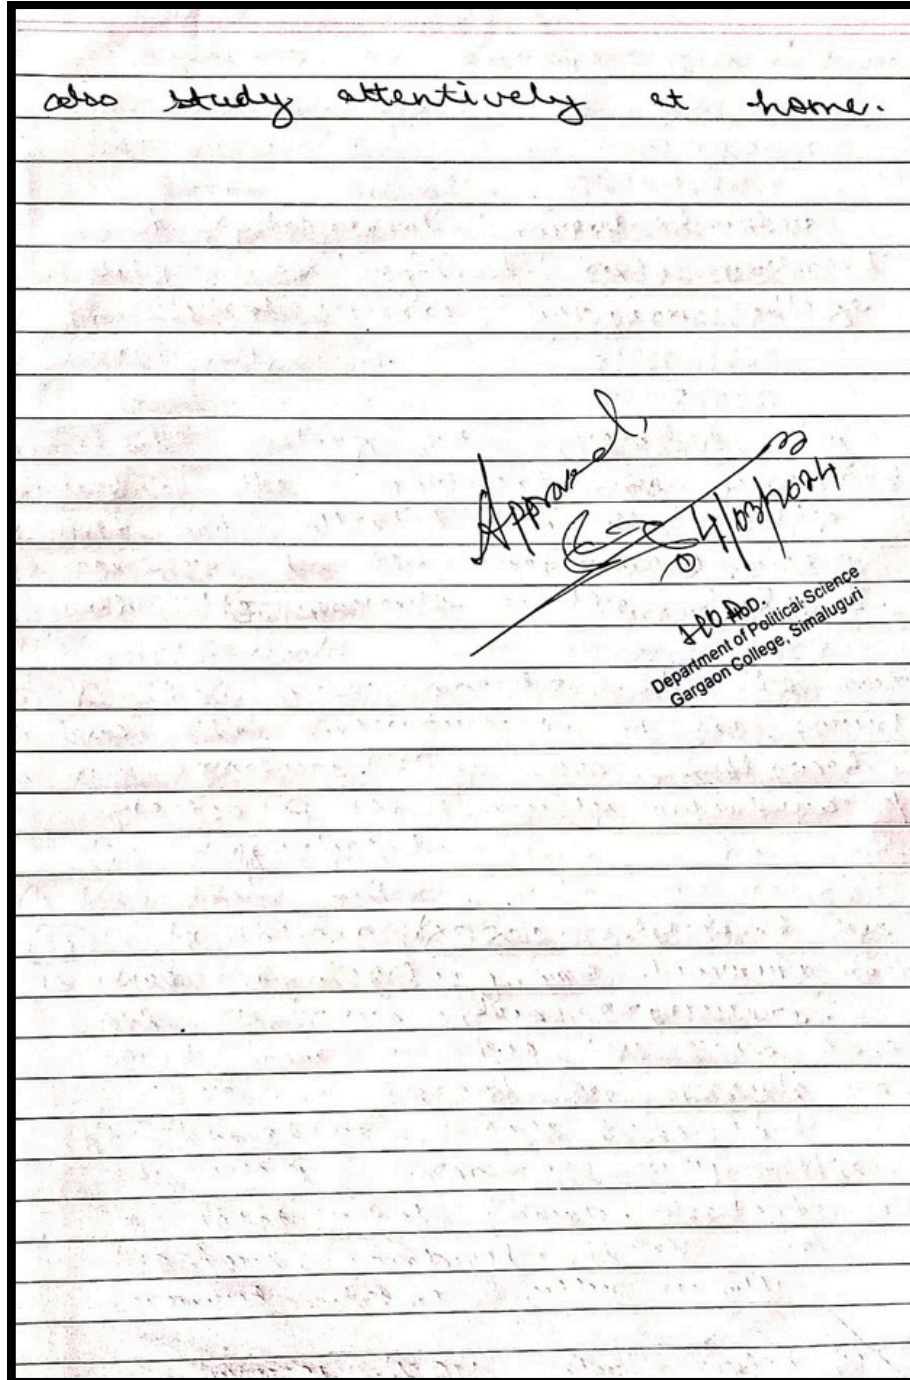 also study attentively at home.
Approved.
04/03/2024
HOD.
HOD.
Department of Political Science
Gargaon College, Simaluguri